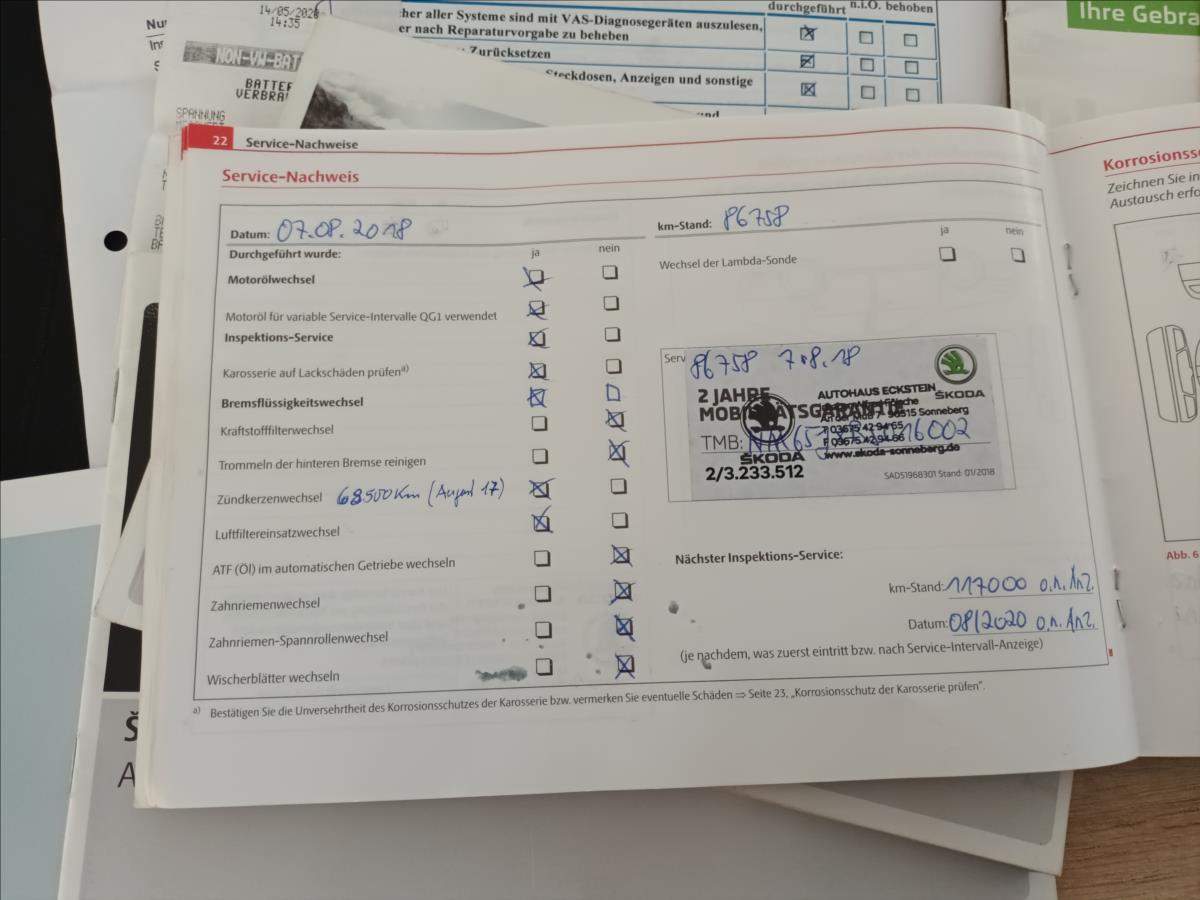 14/05/2020
14:35
NON-VW-BAT
BATTER
VERBRA
SPANNUNG
cher aller Systeme sind mit VAS-Diagnosegeräten auszulesen,
er nach Reparaturvorgabe zu beheben
Zurücksetzen
Steckdosen, Anzeigen und sonstige
durchgeführt n.i.O. behoben
Ihre Gebra
22 Service-Nachweise
Service-Nachweis
Datum: 07.08.2018
km-Stand: 86758
Durchgeführt wurde: ja nein
Motorölwechsel
Motoröl für variable Service-Intervalle QG1 verwendet
Inspektions-Service
Karosserie auf Lackschäden prüfen a)
Bremsflüssigkeitswechsel
Kraftstofffilterwechsel
Trommeln der hinteren Bremse reinigen
Zündkerzenwechsel 68.500 Km (August 17)
Luftfiltereinsatzwechsel
ATF (Öl) im automatischen Getriebe wechseln
Zahnriemenwechsel
Zahnriemen-Spannrollenwechsel
Wischerblätter wechseln
ja nein
Wechsel der Lambda-Sonde
Serv
86758 7.8.18
2 JAHRE
MOBILITÄTSGARANTIE
TMB:
2/3.233.512
ŠKODA
AUTOHAUS ECKSTEIN
96515 Sonneberg
T 03675 42 94 65
F 03675 42 94 66
www.skoda-sonneberg.de
ŠKODA
SAD51968301 Stand: 01/2018
Nächster Inspektions-Service:
km-Stand: 117000 o.n. Anz.
Datum: 08/2020 o.n. Anz.
(je nachdem, was zuerst eintritt bzw. nach Service-Intervall-Anzeige)
a) Bestätigen Sie die Unversehrtheit des Korrosionsschutzes der Karosserie bzw. vermerken Sie eventuelle Schäden ⇒ Seite 23, „Korrosionsschutz der Karosserie prüfen“.
Korrosionss
Zeichnen Sie in
Austausch erfo
Abb. 6